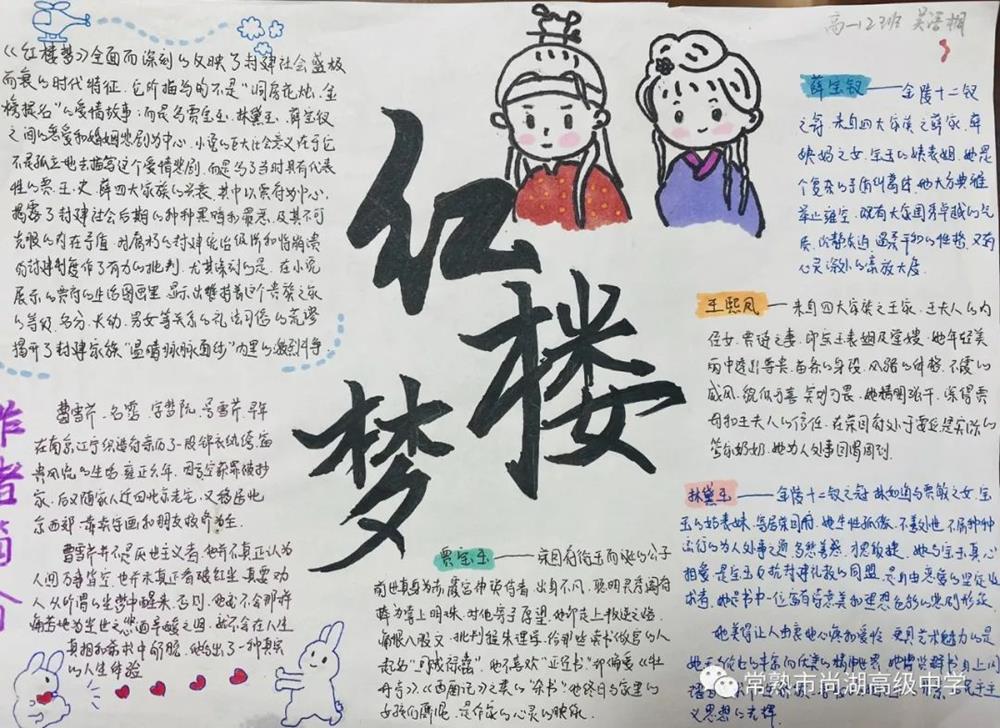 高一12班 吴语桐
《红楼梦》全面而深刻的反映了封建社会盛极
而衰的时代特征.它所描写的不是“洞房花烛、金
榜提名”的爱情故事;而是写贾宝玉、林黛玉、薛宝钗
之间的恋爱和婚姻悲剧为中心.小说的巨大社会意义在于它
不是孤立地去描写这个爱情悲剧.而是写了当时具有代表
性的贾、王、史、薛四大家族的兴衰.其中以贾府为中心.
揭露了封建社会后期的种种黑暗和罪恶.及其不可
克服的内在矛盾.对腐朽的封建统治阶级和将崩溃
的封建制度作了有力的批判.尤其深刻的是.在小说
展示的贾府的生活图画里.显示出维持着这个贵族之家
的等级、名分、长幼、男女等关系的礼法习俗的荒谬
揭开了封建家族“温情脉脉面纱”内里的激烈斗争
作者简介
曹雪芹、名霑、字梦阮、号雪芹.早年
在南京江宁织造府亲历了一段锦衣纨绔、富
贵风流的生活.雍正六年.因亏空获罪被抄
家.后又随家人迁回北京老宅.又移居北
京西郊.靠卖字画和朋友救济为生.
曹雪芹并不是厌世主义者.他并不真正认为
人间万事皆空.也并未真正看破红尘.真要劝
人从所谓的尘梦中醒来.否则.他就不会那样
痛苦地为尘世之悲洒辛酸之泪.就不会在人生
真相和
他给出了一种真实
的人生体验
红
楼
梦
薛宝钗——金陵十二钗
之冠.来自四大家族之薛家.薛
姨妈之女.宝玉的姨表姐.她是
个复杂的矛盾纠葛体.她大方典雅
举止雍容.既有大家闺秀卓越的气
质.
温柔平和的性格.又有
心灵深处的豪放大度.
王熙凤——来自四大家族之王家.王夫人的内
侄女.贾琏之妻.即宝玉表姐及堂嫂.她年轻美
苗条的身段.风骚的体格.不露的
威风.
她精明强干.深得贾
母和王夫人的信任.在荣国府处于
是实际的
管家奶奶.她为人处事圆滑周到.
林黛玉——金陵十二钗之冠.林如海与贾敏之女.宝
玉的姑表妹.寄居荣国府.她生性孤傲.不善处世.不屑种种
为人处事之道.多愁善感.才思敏捷.她与宝玉真心
相爱.是宝玉反抗封建礼教的同盟.是自由恋爱的坚定追
求者.她是书中一位富有完美和理想色彩的悲剧形象.
她美得让人由衷地心疼和爱怜.更具艺术魅力的是
义思想的光辉.
贾宝玉——荣国府衔玉而诞的公子
前世真身为赤霞宫神瑛侍者.出身不凡.聪明灵秀.阖府
捧为掌上明珠.对他寄予厚望.他却走上叛逆之路.
痛恨八股文.批判程朱理学.给那些读书做官的人
起名“国贼禄蠹”.他不喜欢“正经书”.却偏爱《牡
丹亭》、《西厢记》之类的“杂书”.他终日与家里的
女孩们厮混.是作家的心灵的映射.
常熟市尚湖高级中学